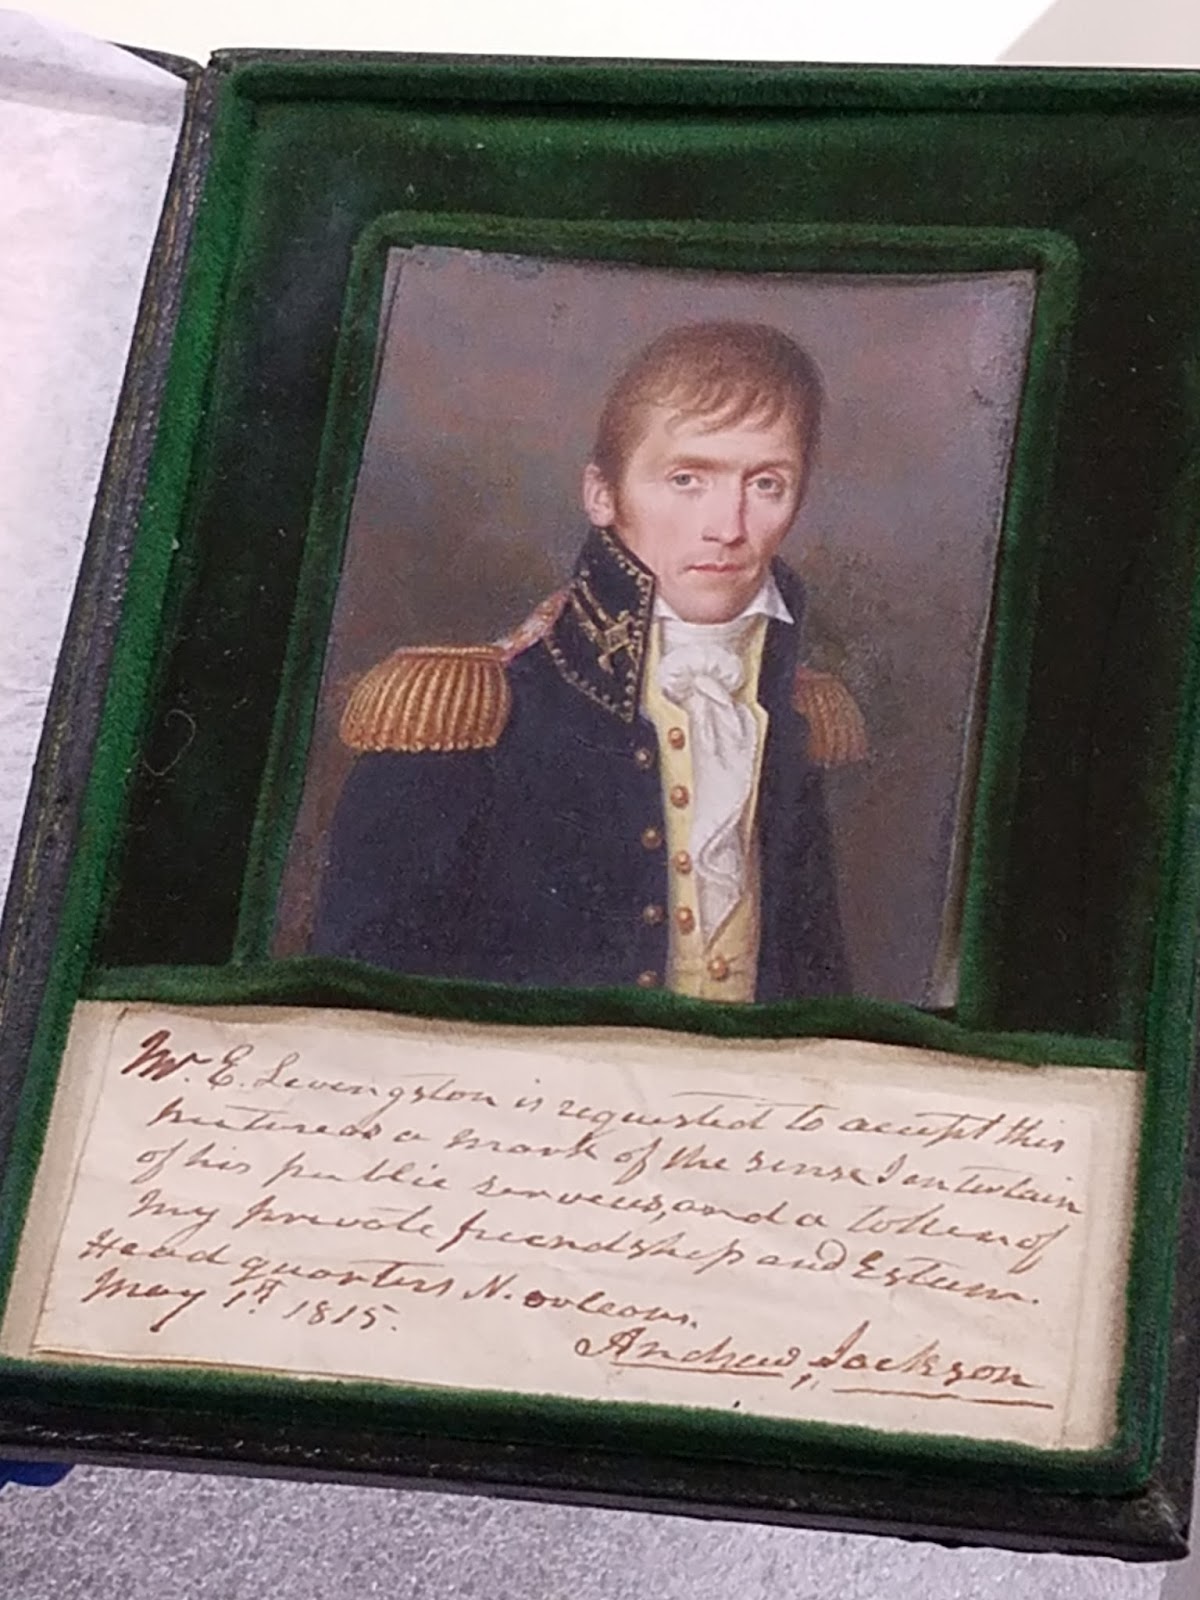 Mr. E. Livingston is requested to accept this
picture as a mark of the sense I entertain
of his public services, and a token of
my private friendship and Esteem.
Head quarters N. orleans.
May 1st. 1815.
Andrew Jackson